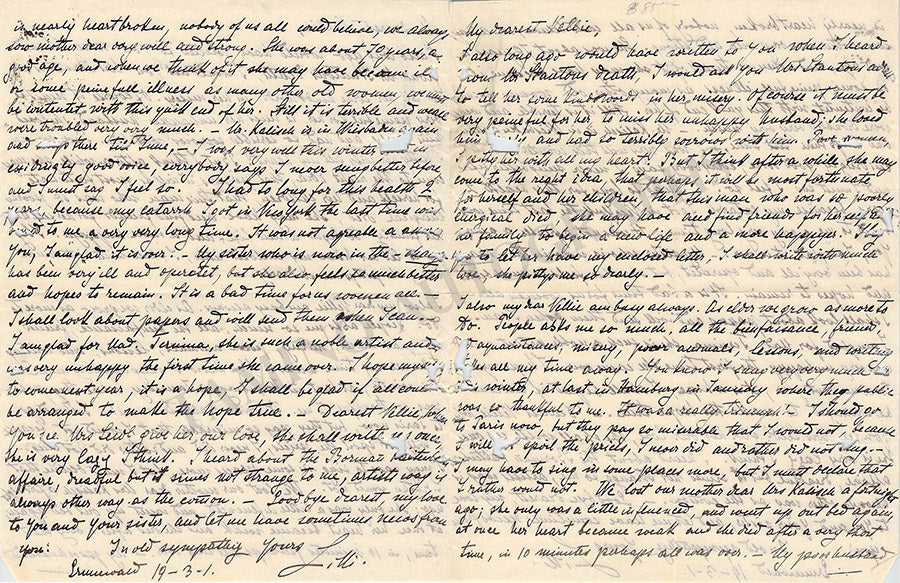 My dearest Nellie
I also long ago would have written to You when I heard
from Mr Stantons death, I would ask You Mrs Stantons adress
to tell her some kind words in her misery. Of course it must be
very painful for her to miss her unhappy husband; she loved
him and had so terribly sorrows with him. Poor woman,
I pitty her with all my heart! But I think after a while she may
come to the right idea that perhaps it will be most fortunate
for herself and her children, that this man who was so poorly
energical died, she may have and find friends for herself &
her family to begin a new life and a more happyer.
You to let her have my enclosed letter, I shall write with much
love she pittys me so dearly. —
I also my dear Nellie am busy always. As elder we grow as more to
do. People asks me so much, all the bienfaisance, friend,
acquaintances, misery, poor animals, lessons, and writing
all my time away. You know I sang very very much
winter, at last in Hamburg in January where they public
was so thankful to me. It was a really triumph! — I should go
to Paris now, but they pay so miserable that I would not because
it will spoil the prices, I never did and rather did not sing. —
I may have to sing in some places more, but I must declare that
I rather would not. We lost our mother dear Mrs Kalisch a fortnight
ago; she only was a little influenced, and went up out bed again
at once her heart became weak and she died after a very short
time, in 10 minutes perhaps all was over. — My poor husband
is nearly heartbroken, nobody of us all could believe, we always
saw mother dear very well and strong. She was about 70 years, a
good age, and when we think of it she may have became ill
or some peinefull illness as many other old women, we must
be contentet with this quik end of her. Still it is terrible and we all
were troubled very very much. — Mr. Kalisch is in Wiesbaden again
and stays there this time, — I was very well this winter in
exceedingly good voice, everybody says I never sung better before
and I must say I feel so. I had to long for this health 2
years because my catarrh I got in New York the last time was
to me a very very long time. It was not agreable a assure
You, I am glad it is over. — My sister who is now in the
has bein very ill and operatet, but she also feels so much better
and hopes to remain. It is a bad time for us women all. —
I shall look about papers and will send them when I can. —
I am glad for Mad. Ternina, she is such a noble artist and
was very unhappy the first time she came over. I hope my
to come next year, it is a hope, I shall be glad if all could
be arranged to make the hope true. — Dearest Nellie, when
You see Mrs give her our love, she shall write us once,
she is very lazy I think. I heard about the
affaire, dreadful but it simes not strange to me, artists way is
always other way as the common. — Goodbye dearest, my love
to You and Your sister, and let me have sometimes news from
you!
In old sympathy Yours
Lilli.
Grunewald 19-3-1.